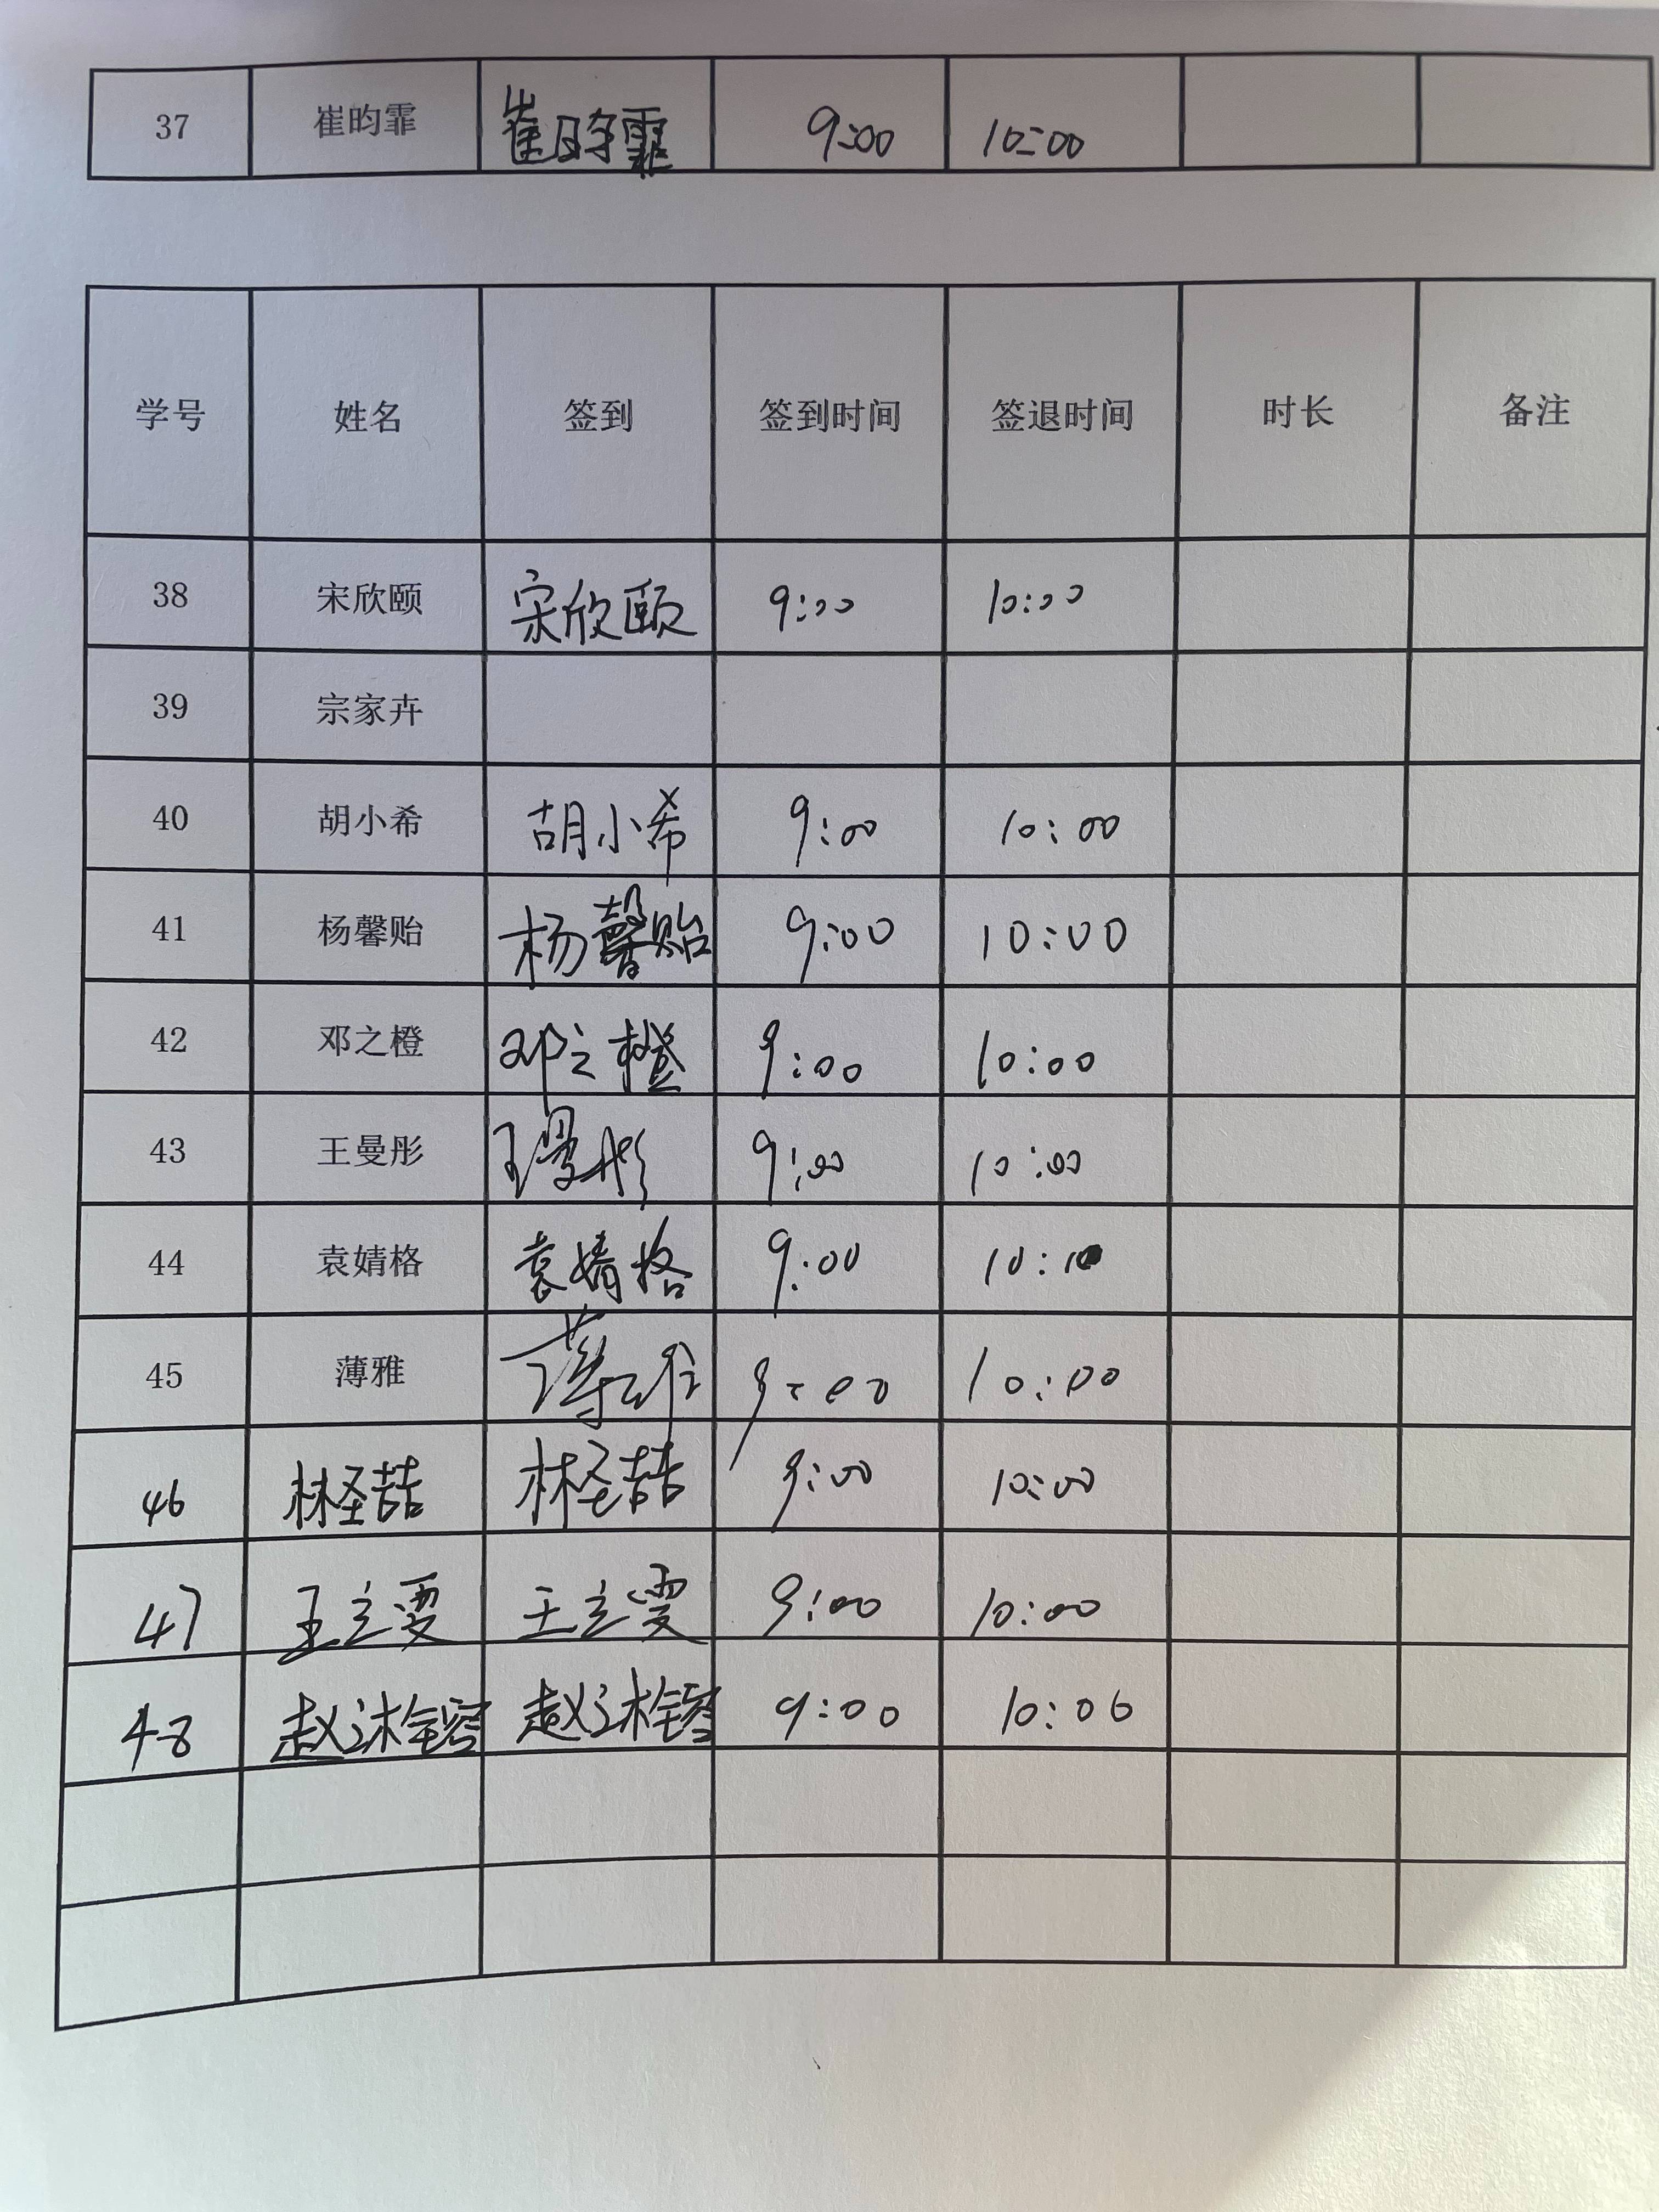 37 崔昀霏 崔昀霏 9:00 10:00
学号 姓名 签到 签到时间 签退时间 时长 备注
38 宋欣颐 宋欣颐 9:00 10:00
39 宗家卉
40 胡小希 胡小希 9:00 10:00
41 杨馨贻 杨馨贻 9:00 10:00
42 邓之橙 邓之橙 9:00 10:00
43 王曼彤 王曼彤 9:00 10:00
44 袁婧格 袁婧格 9:00 10:
45 薄雅 薄雅 9:00 10:00
46 林圣喆 林圣喆 9:00 10:00
47 王立雯 王立雯 9:00 10:00
48 9:00 10:00